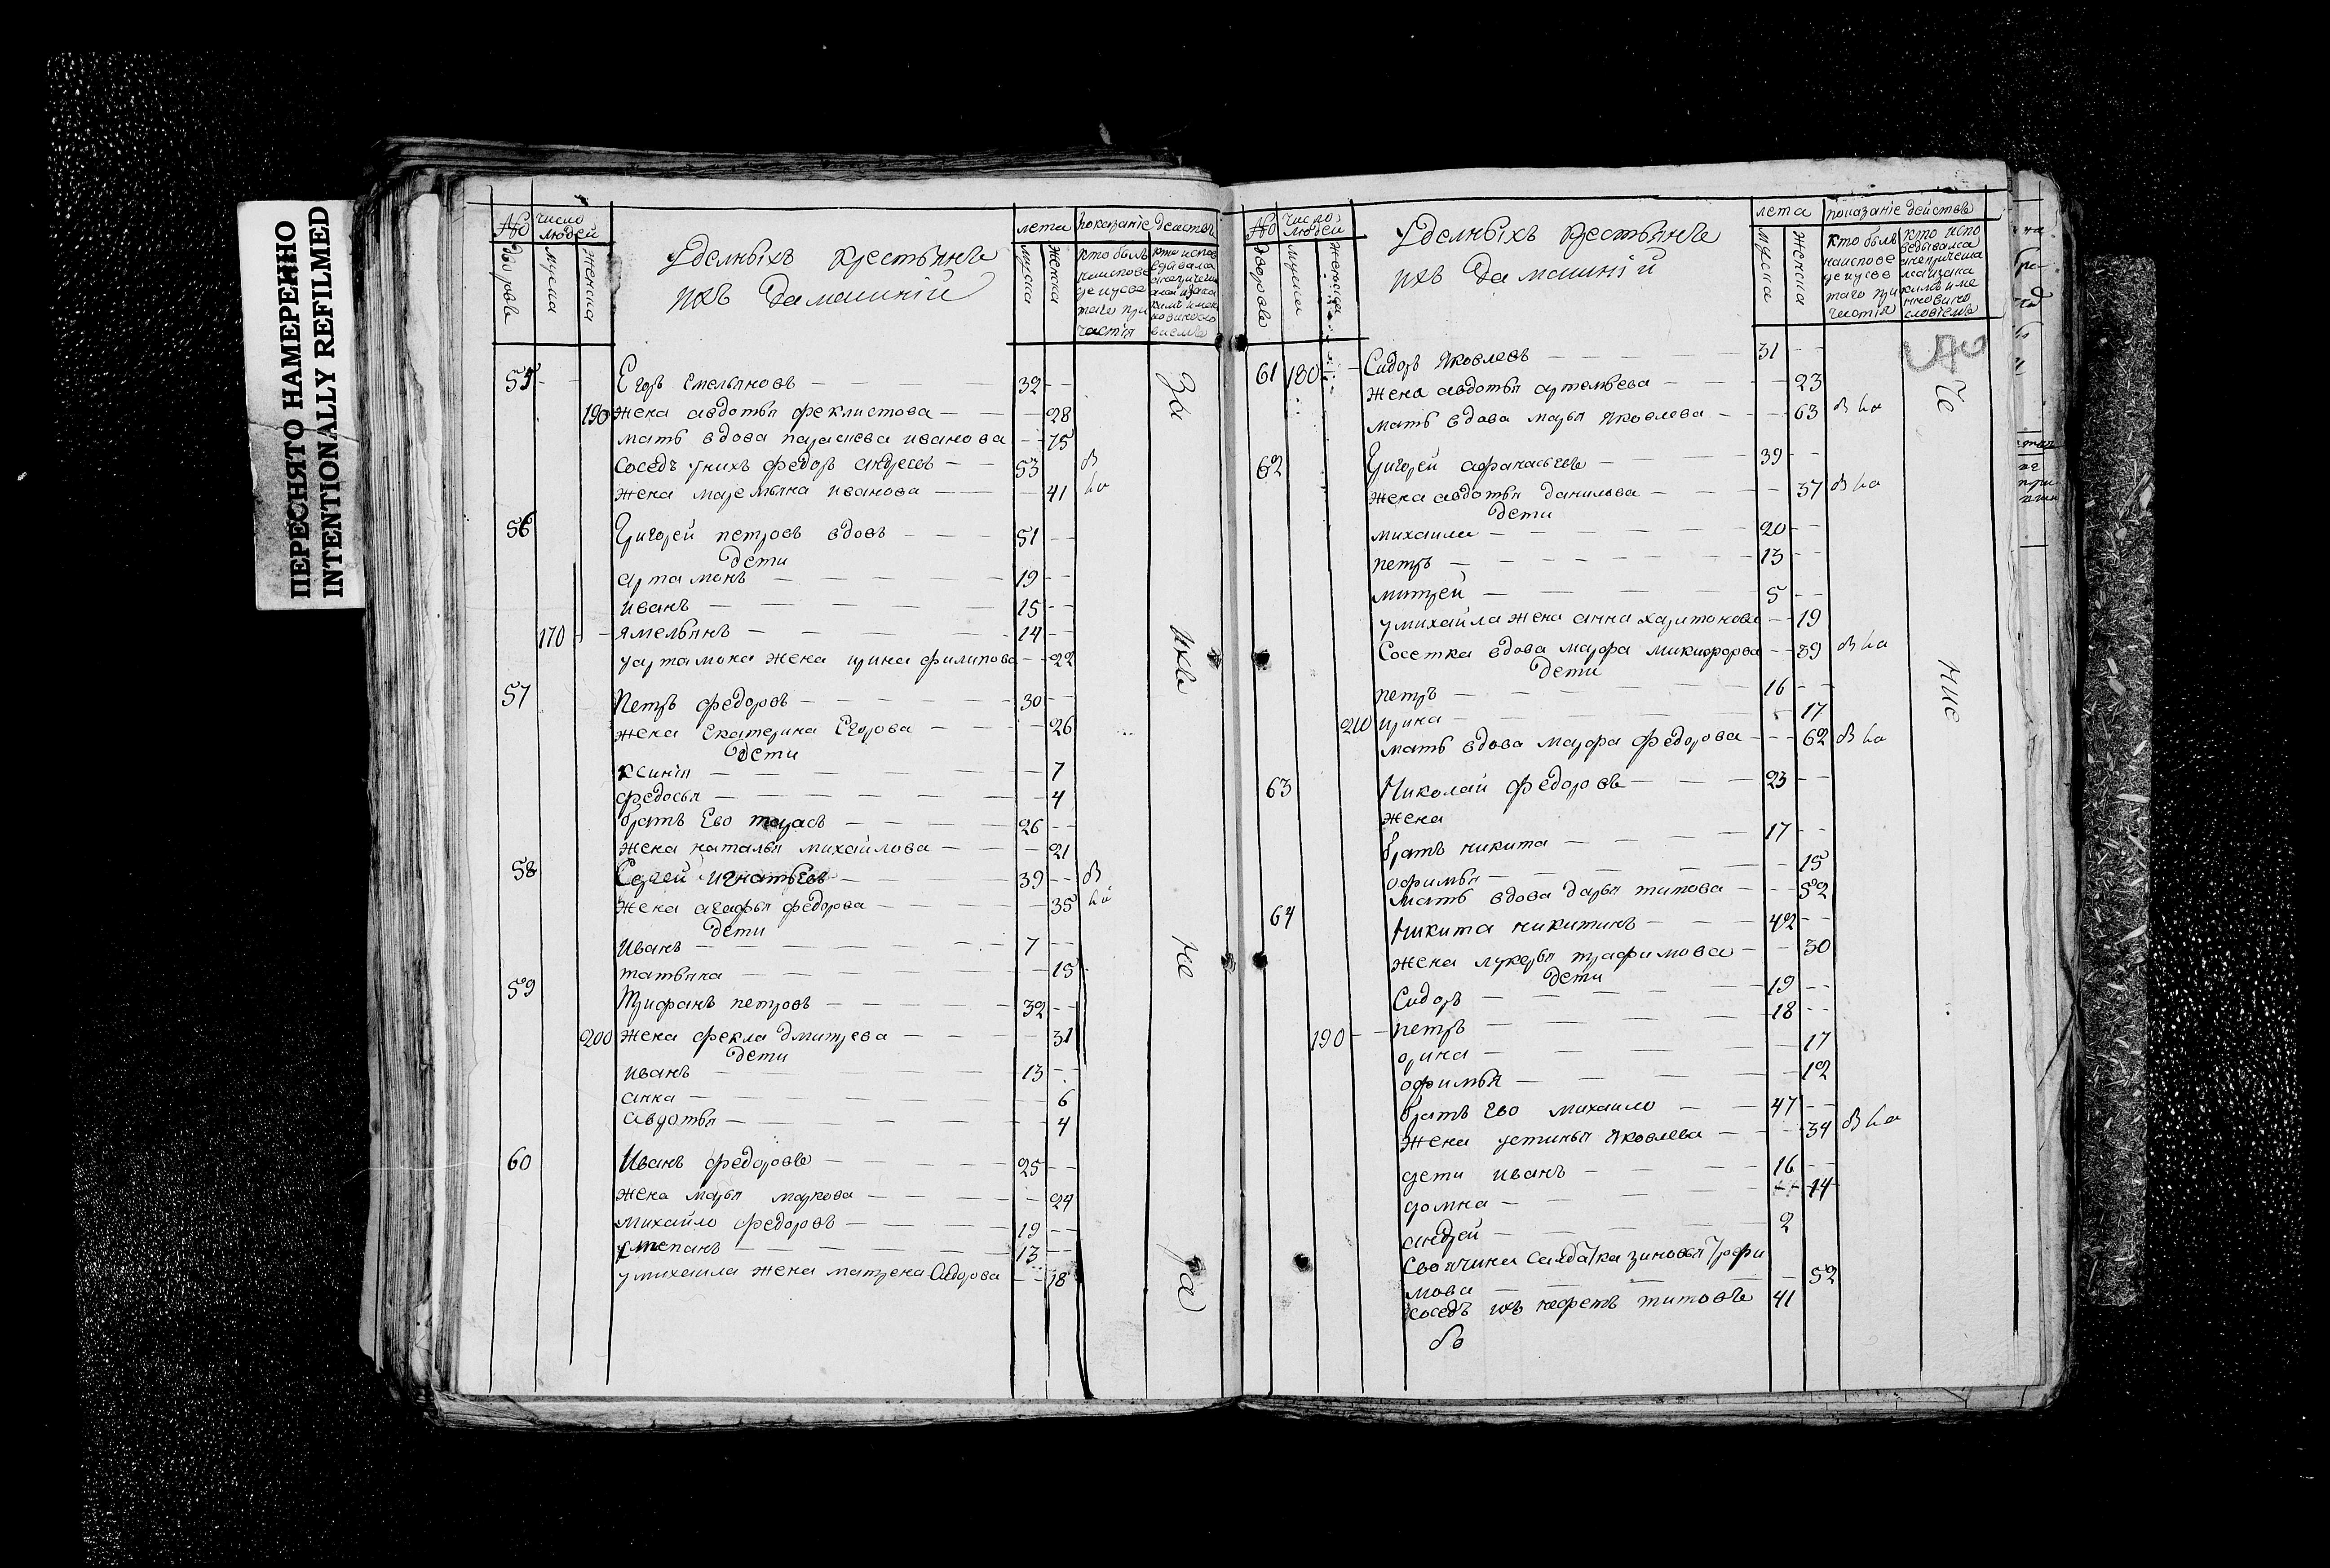 ПЕРЕСНЯТО НАМЕРЕННО
INTENTIONALLY REFILMED
№ число людей лета показание действъ
дворовъ мужска женска мужска женска
Уделныхъ крестьянъ
ихъ дамашнiи
кто былъ
наиспове
55 Егоръ Емельяновъ 32
190 жена авдотья феклистова 28
мать вдова парасева иванова 75
Соседъ уних федоръ андреевъ 53
жена маремьяна иванова 41
56 Григорей петровъ вдовъ 51
дети
артамонъ 19
иванъ 15
170 ямельянъ 14
уартамона жена ирина филипова 22
57 Петръ федоровъ 30
жена Екатерина Егорова 26
дети
ксинiя 7
федосья 4
братъ Ево тарасъ 26
жена наталья михайлова 21
58 Сергей игнатьевъ 39
жена агафья федорова 35
дети
иванъ 7
татьяна 15
59 Трифанъ петровъ 32
200 жена фекла дмитрева 31
дети
иванъ 13
анна 6
авдотья 4
60 Иванъ федоровъ 25
жена марья маркова 24
михайло федоровъ 19
степанъ 13
умихаила жена матрена Сидорова 18
За
ихъ
не
ра
№ число людей лета показанiе действъ
дворовъ мужска женска мужска женска
Уделныхъ крестьянъ
ихъ дамашнiй
кто былъ
наиспове
61 180 Сидоръ Яковлевъ 31
жена авдотья артемьева 23
мать вдова марья Яковлева 63
62 Григорей афанасьевъ 39
жена авдотья данилова 37
дети
михаила 20
петръ 13
митрей 5
умихайла жена анна харитонова 19
Соседка вдова марфа микифорова 39
дети
петръ 16
210 ирина 17
мать вдова марфа федорова 62
63 Николай федоровъ 23
жена
братъ никита 17
офимья 15
мать вдова дарья титова 52
64 Никита никитинъ 42
жена лукерья трафимова 30
дети
Сидоръ 19
190 петръ 18
орина 17
офимья 12
братъ Ево михаило 47
жена устинья Яковлева 34
дети иванъ 16
домна 14
андрей 2
Своячина Салдатка зиновья Трофи
мова 52
Соседъ ихъ нефетъ титовъ 41
Че
нис